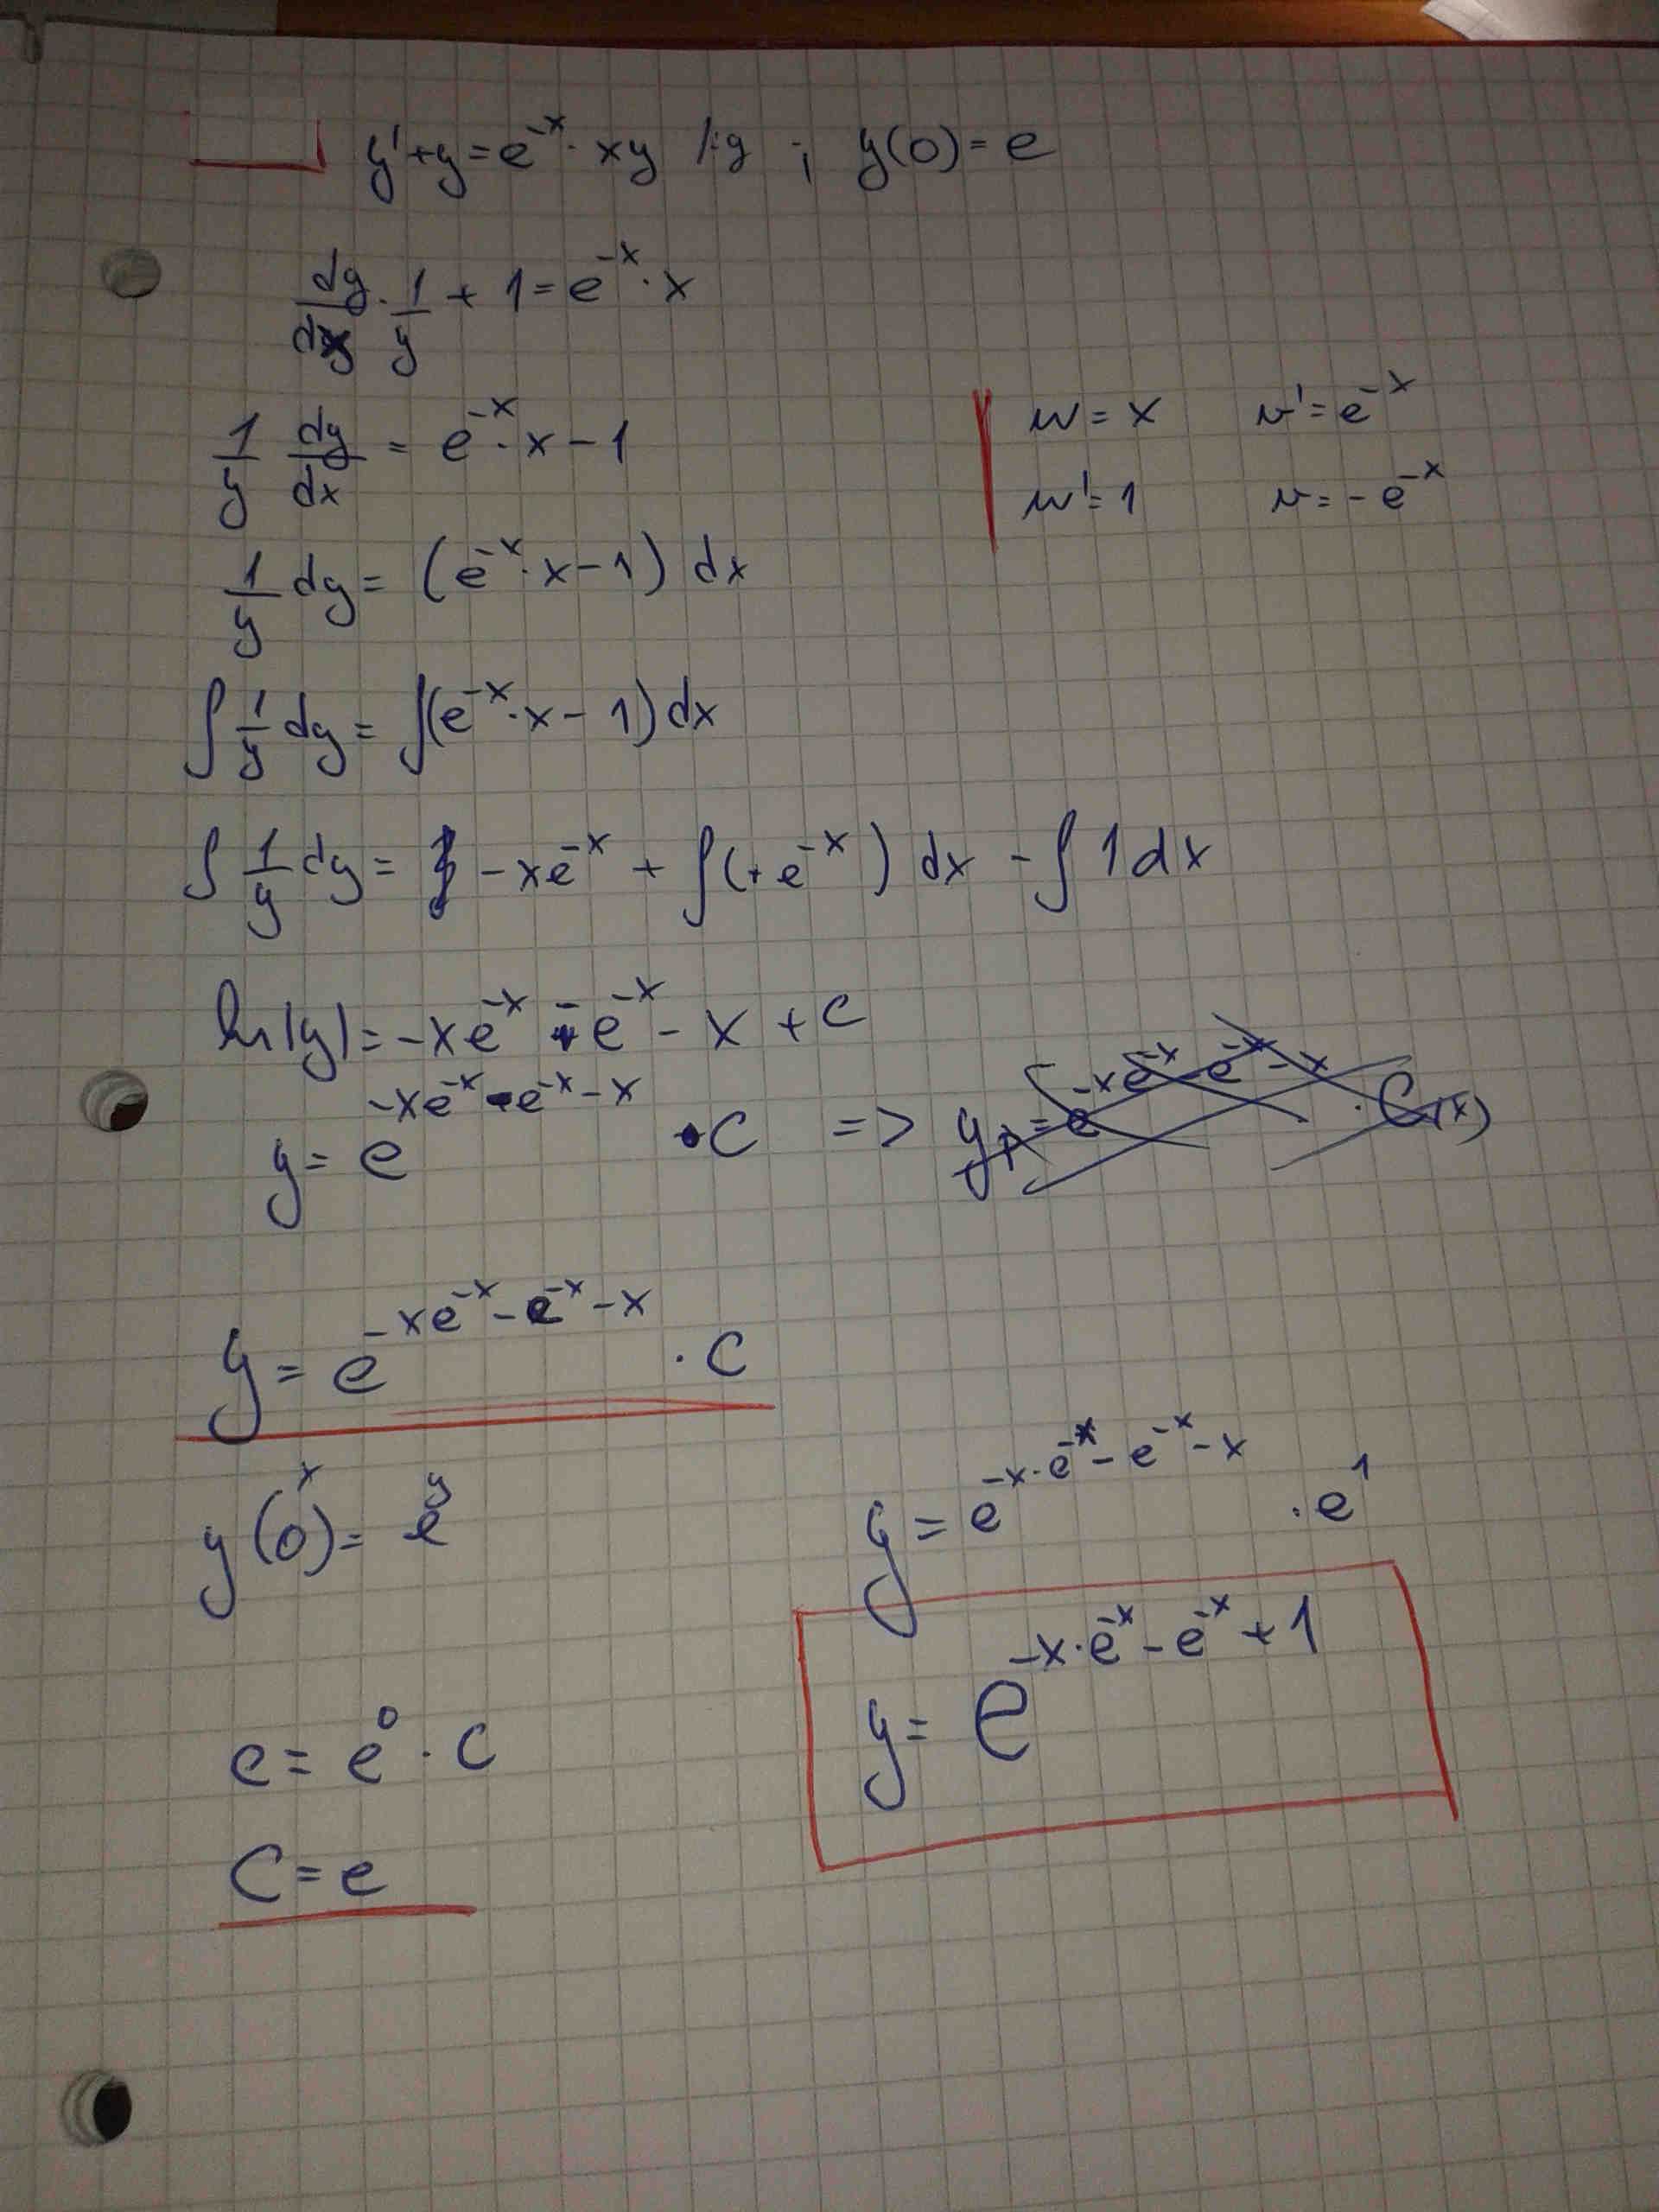 y'+y=e^{-x}·xy /:y ; y(0)=e
dy/dx · 1/y + 1=e^{-x}·x
1/y dy/dx = e^{-x}·x-1
u=x v'=e^{-x}
u'=1 v=-e^{-x}
1/y dy= (e^{-x}·x-1) dx
∫ 1/y dy= ∫(e^{-x}·x-1)dx
∫ 1/y dy= -xe^{-x} + ∫(+e^{-x}) dx - ∫ 1 dx
ln|y|= -xe^{-x} - e^{-x} - x + c
y= e^{-xe^{-x}-e^{-x}-x} · C =>
y = e^{-xe^{-x}-e^{-x}-x} · C
y(0)= e
x y
e= e^0 · C
C=e
y = e^{-x·e^{-x}-e^{-x}-x} · e^1
y= e^{-x·e^{-x}-e^{-x}+1}